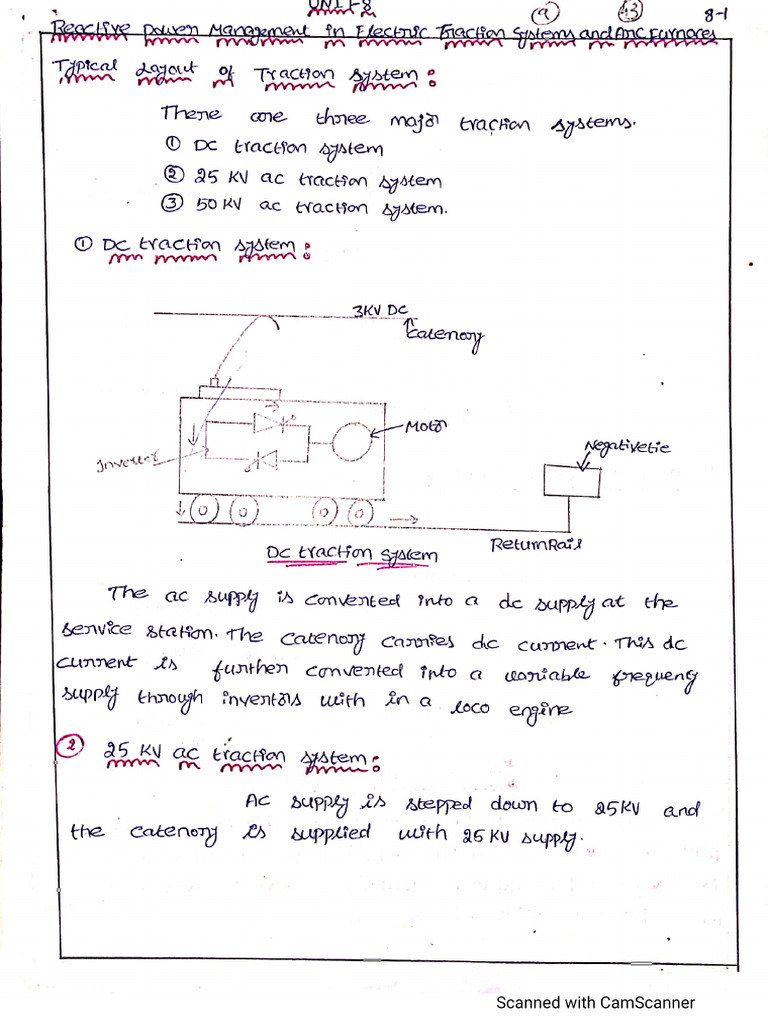 UNIT-8
9
13
8-1
Reactive power Management in Electric Traction Systems and Arc Furnaces
Typical Layout of Traction system:
There are three major traction systems.
① DC traction system
② 25 KV ac traction system
③ 50 KV ac traction system.
① DC traction system:
3KV DC
Catenory
Motor
Inverter
Negative tie
Return Rail
DC traction system
The ac supply is converted into a dc supply at the
service station. The catenory carries dc current. This dc
current is further converted into a variable frequency
supply through invertors with in a loco engine
② 25 KV ac traction system:
AC supply is stepped down to 25KV and
the catenory is supplied with 25 KV supply.
Scanned with CamScanner